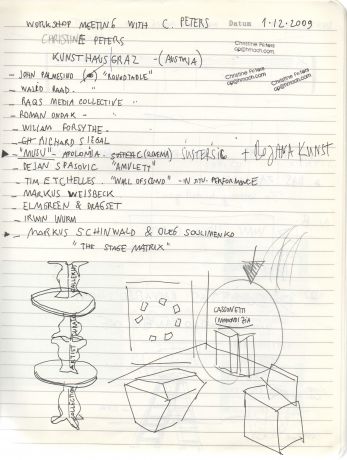 WORKSHOP MEETING WITH C. PETERS Datum 1.12.2009
CHRISTINE PETERS
KUNSTHAUS GRAZ - (AUSTRIA)
Christine Peters
cp@hmach.com
Christine Peters
cp@hmach.com
Christine Peters
cp@hmach.com
- JOHN PALMESINO "ROUNDTABLE"
- WALID RAAD. "
- RAQS MEDIA COLLECTIVE "
- ROMAN ONDAK - "
- WILLIAM FORSYTHE.
- RICHARD SIEGAL
- "MUZU" - APOLONIA ŠUSTERŠIČ + BOJANA KUNST
- DEJAN SPASOVIC "AMULETY"
- TIM ETCHELLES. "WALL OF SOUND" - IN SITU PERFORMANCE
- MARKUS WEISBECK
- ELMGREEN & DRAGSET
- IRWIN WURM
- MARKUS SCHINWALD & OLEG SOULIMENKO
"THE STAGE MATRIX"
CURATOR
ARTIST
COLLECTION
CASSONETTI